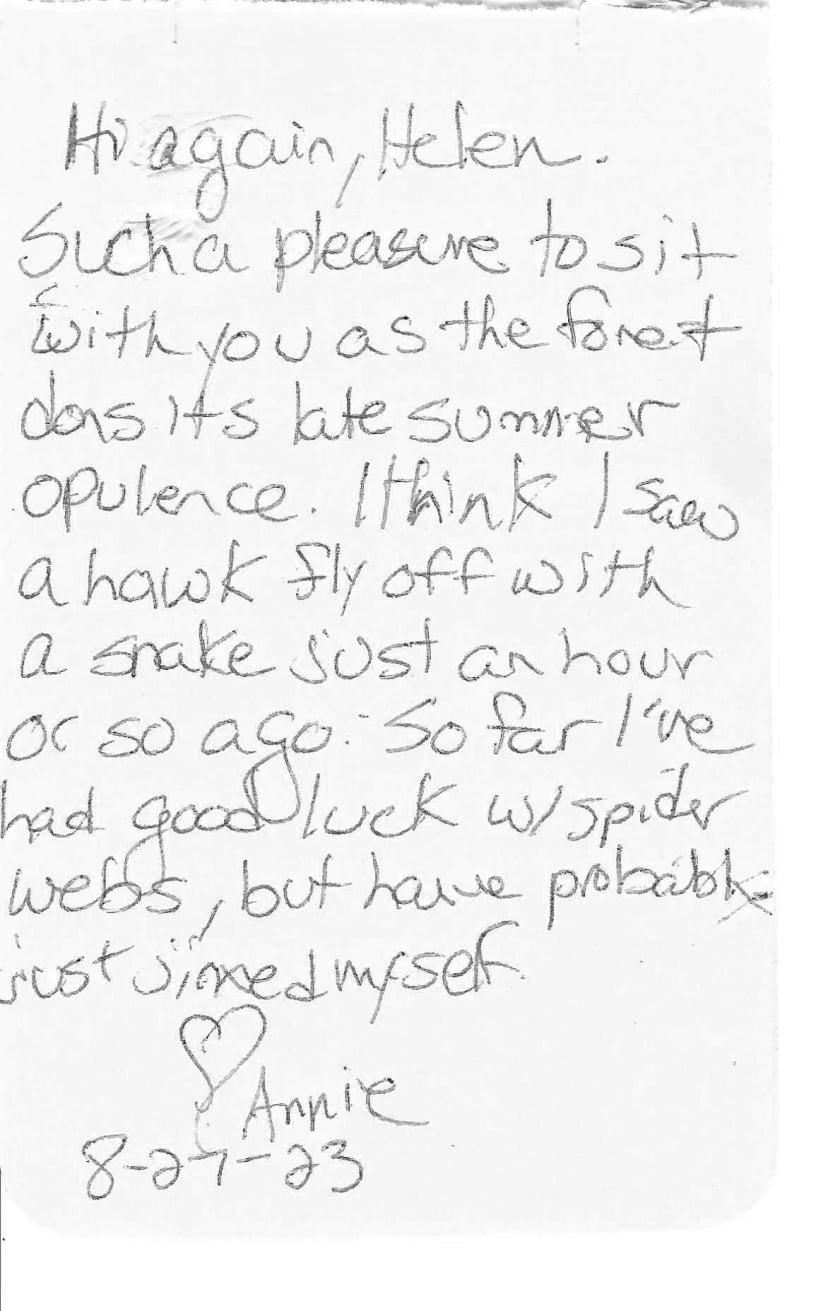 Hi again, Helen.
Such a pleasure to sit
with you as the forest
dons its late summer
opulence. I think I saw
a hawk fly off with
a snake just an hour
or so ago. So far I've
had good luck w/ spider
webs, but have probably
just jinxed myself.
♡ Annie
8-27-23